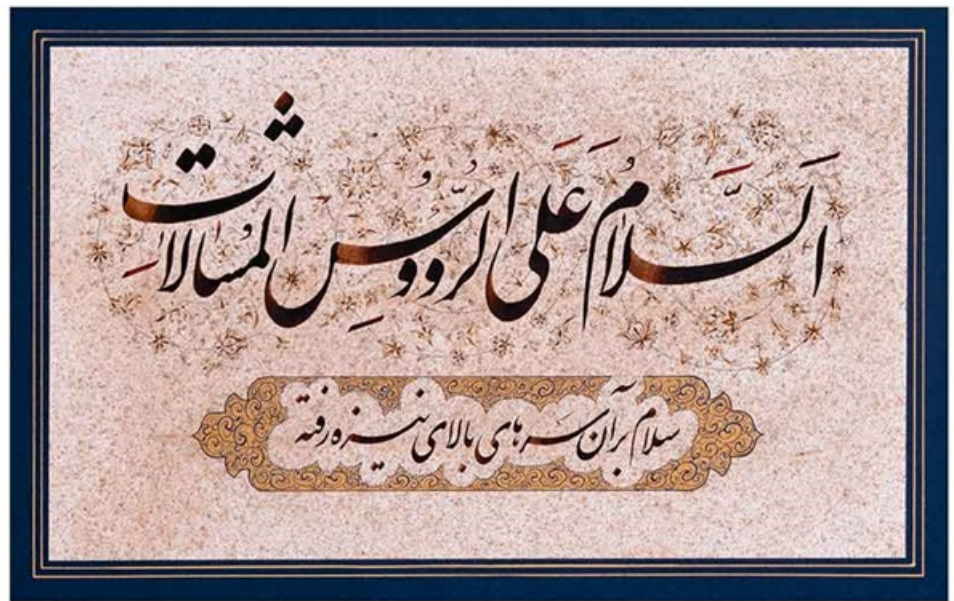 السَّلامُ عَلَى الرُّووُسِ المُشالاتِ
سلام بر آن سرهای بالای نیزه رفته